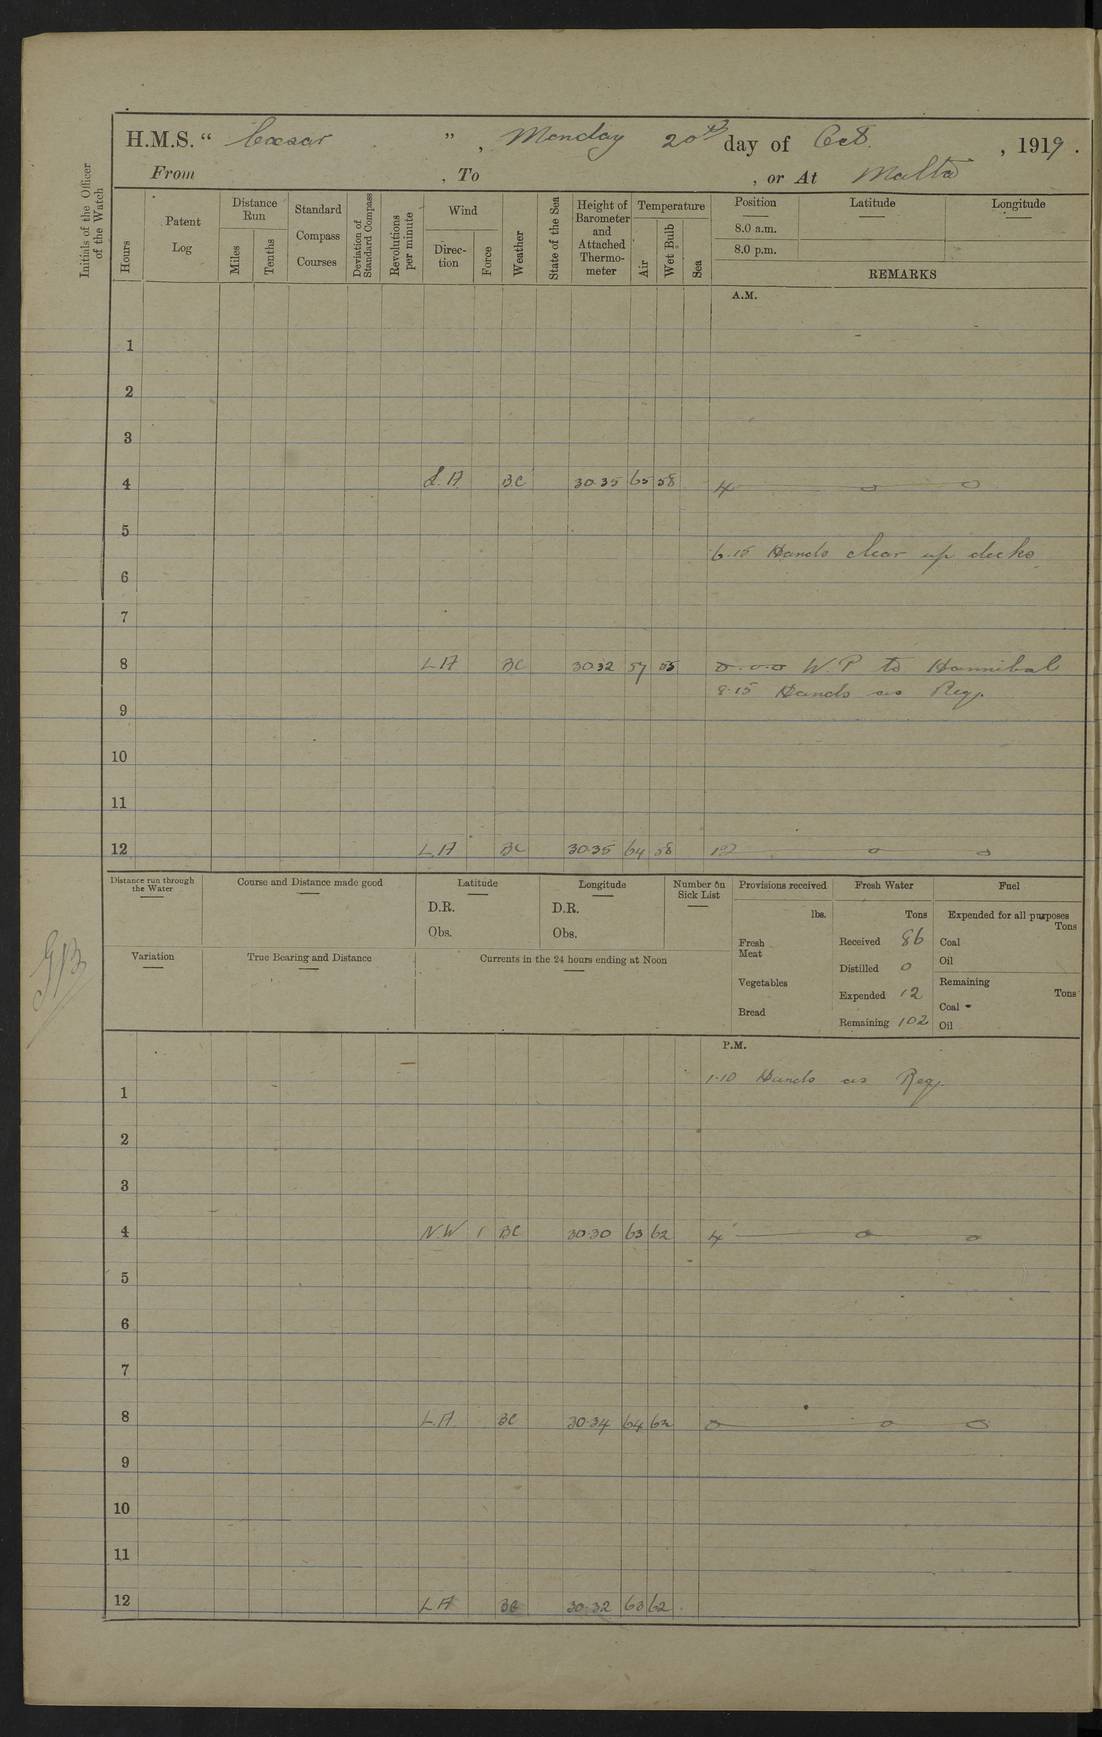 H.M.S. “ Cæsar ”, Monday 20th day of Oct. , 1919.
From , To , or At Malta
Initials of the Officer of the Watch
Hours
Patent Log
Distance Run
Miles
Tenths
Standard Compass Courses
Deviation of Standard Compass
Revolutions per minute
Wind
Direction
Force
Weather
State of the Sea
Height of Barometer and Attached Thermometer
Temperature
Air
Wet Bulb
Sea
Position Latitude Longitude
8.0 a.m.
8.0 p.m.
REMARKS
A.M.
1
2
3
4 L.A BC 30.35 65 58 4
5
6.15 Hands clear up decks
6
7
8 LA BC 30.32 57 55 W.P to Hannibal
8.15 Hands as Req.
9
10
11
12 LA BC 30.35 64 58 12
Distance run through the Water
Course and Distance made good
Latitude
D.R.
Obs.
Longitude
D.R.
Obs.
Number on Sick List
Provisions received
lbs.
Fresh Meat
Vegetables
Bread
Fresh Water
Tons
Received 86
Distilled 0
Expended 12
Remaining 102
Fuel
Expended for all purposes
Tons
Coal
Oil
Remaining
Tons
Coal
Oil
Variation
True Bearing and Distance
Currents in the 24 hours ending at Noon
P.M.
1.10 Hands as Req.
1
2
3
4 N.W 1 BC 30.30 63 62 4
5
6
7
8 L.A BC 30.34 64 62
9
10
11
12 LA BC 30.32 63 62